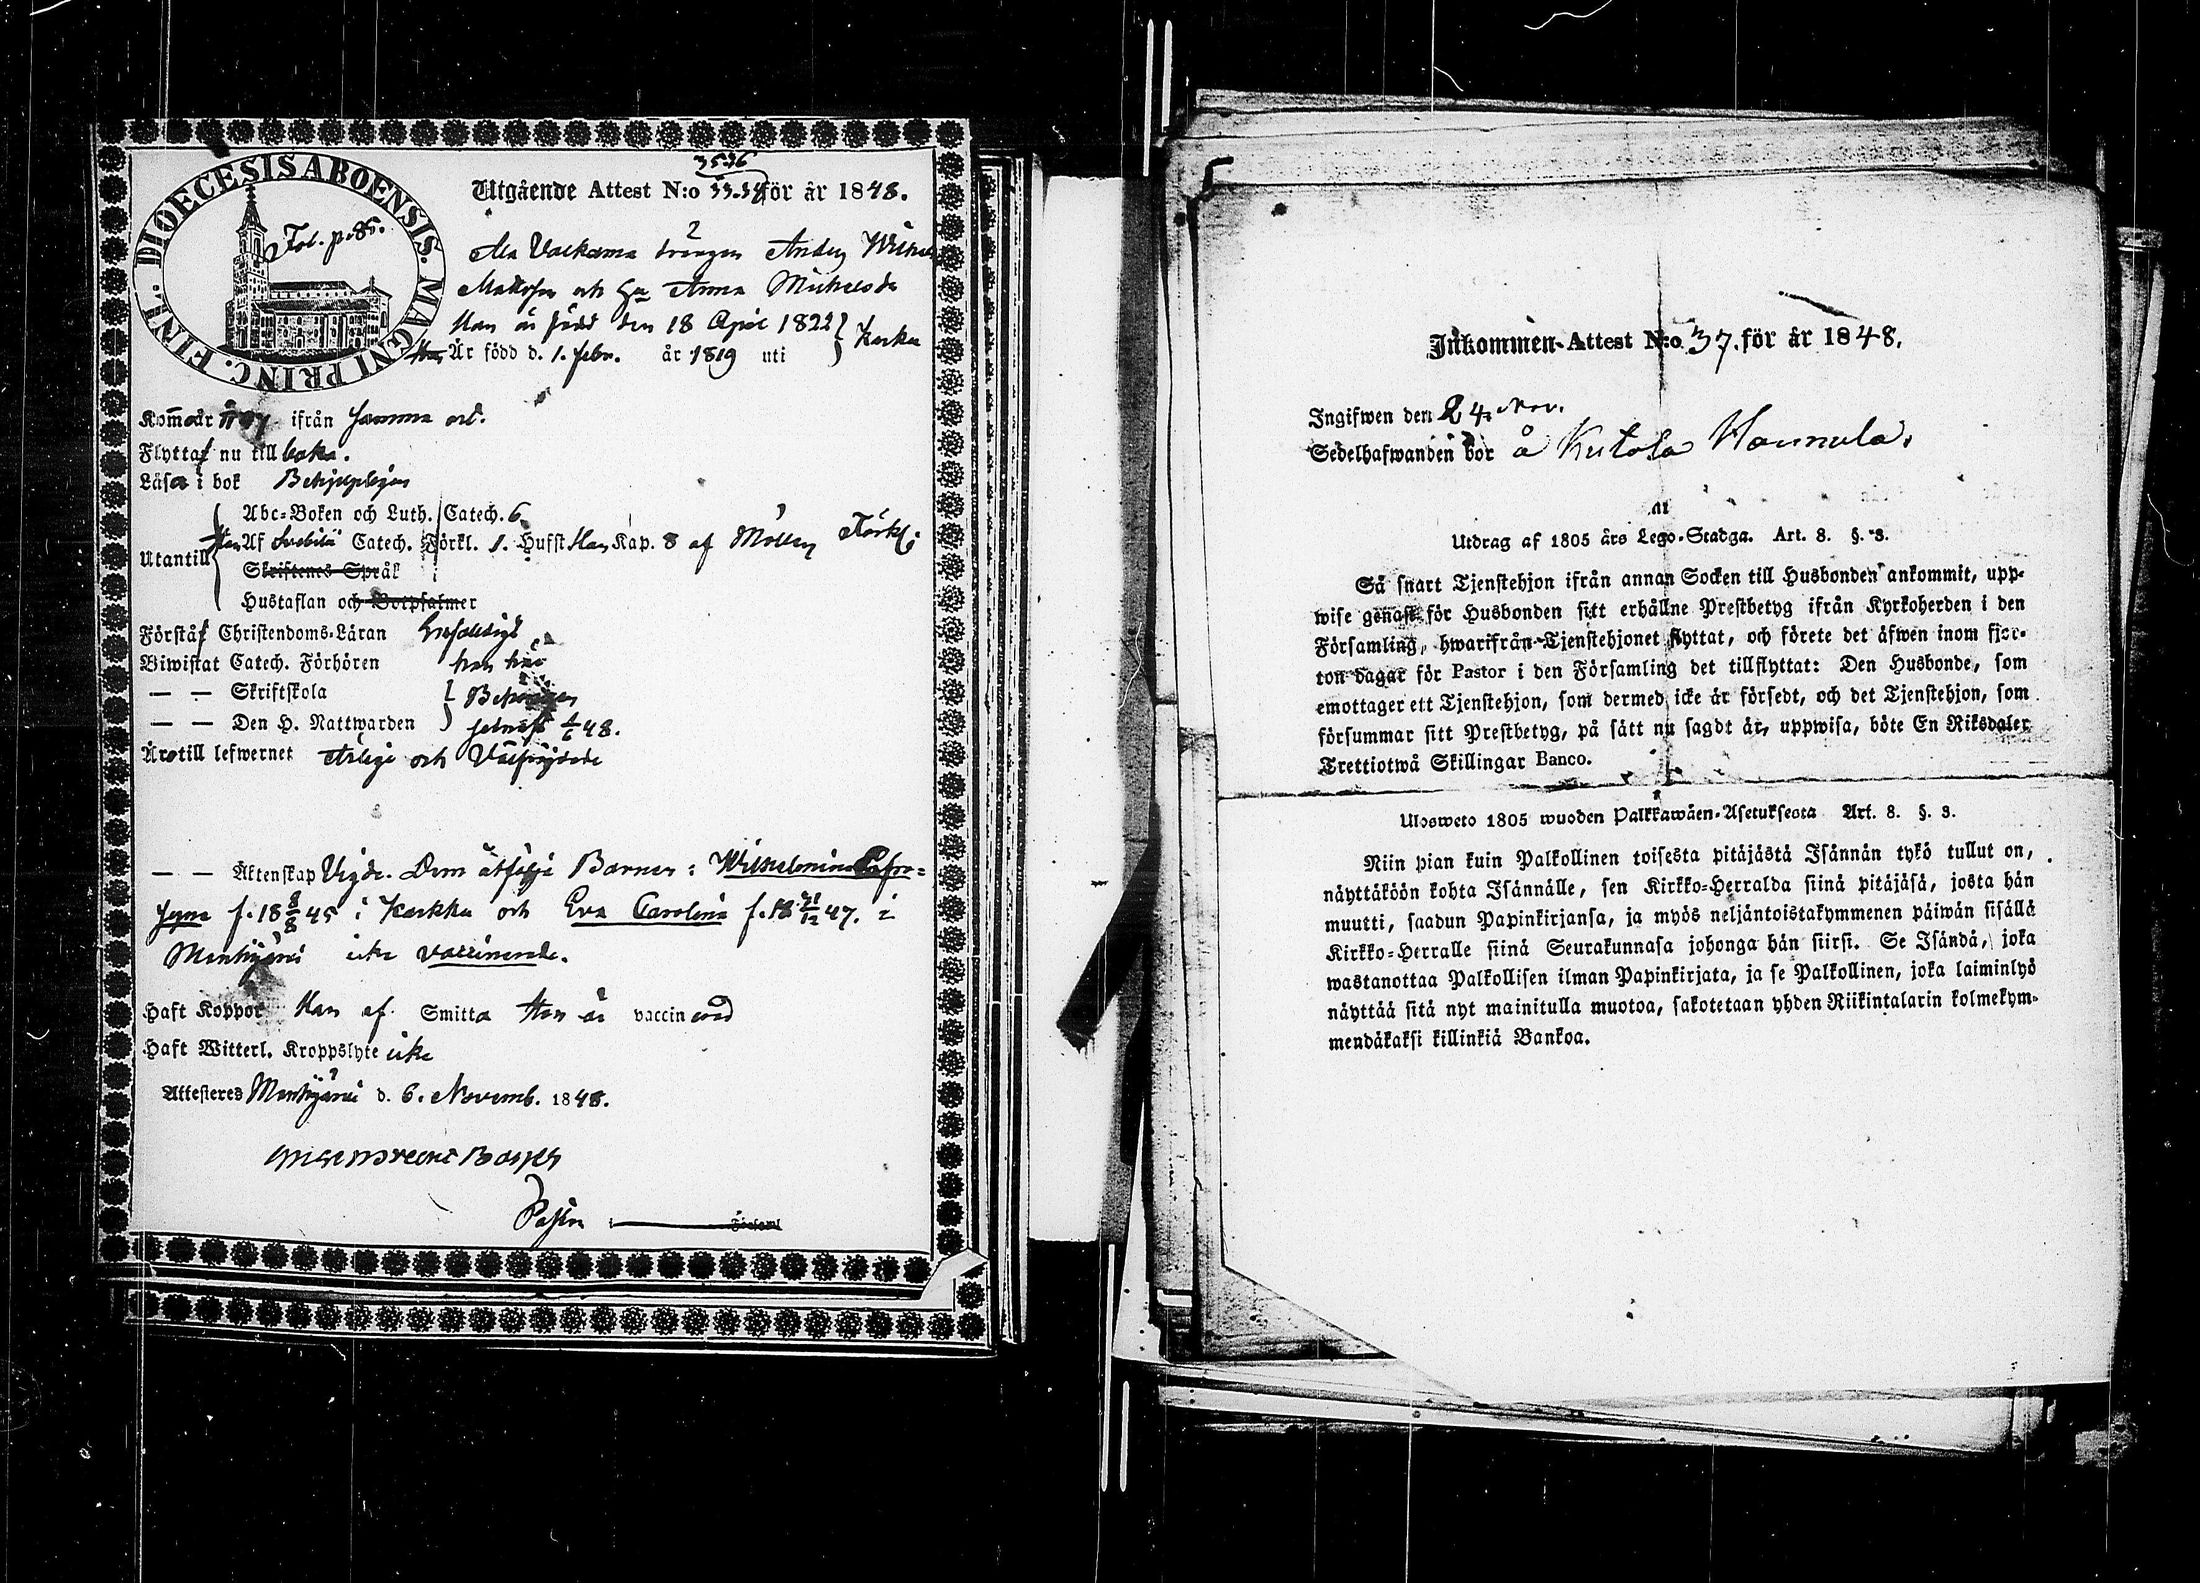 DIOECESIS ABOENSIS. MAGNI PRINC. FINL.
Fol. p. 85.
3536
Utgående Attest N:o 33.34 för år 1848.
Drängen Anders
och Hu Anna Michelsdr
Han är född den 18 Apil 1822
Är född d. 1. Febr. år 1819 uti Karku
Kommo år ifrån samma ort.
Flytta nu till baka.
Läsa i bok
Utantill
Abc-Boken och Luth. Catech. 6
Han Af Svebilii Catech. Förkl. 1. Hust Han Kap. 8 af Möllers Förkl.
Skriftenes Språk
Hustaflan och Botpsalmer
Förstå Christendoms-Läran
Biwistat Catech. Förhören
— — Skriftskola
— — Den H. Nattwarden 48.
Äro till lefwernet Ärlige och Välfrejdade
— — Äktenskap Vigde. Dem åtfölja Barnen: Wilhelmina
f. 18 8/8 45 i Karkku och Eva Carolina f. 18 21/12 47. i
Mouhijärvi icke vaccinerade.
Haft Koppor Han af Smitta Hon är vaccinerad
Haft Witterl. Kroppslyte icke
Attesteres Mouhijärvi d. 6. Novemb. 1848.
Pastor Församl
Inkommen-Attest N:o 37. för år 1848.
Ingifwen den 24 Nov.
Sedelhafwanden bor å Kutala Hannula.
Utdrag af 1805 års Lego-Stadga. Art. 8. §. 3.
Så snart Tjenstehjon ifrån annan Socken till Husbonden ankommit, upp-
wise genast för Husbonden sitt erhållne Prestbetyg ifrån Kyrkoherden i den
Församling, hwarifrån Tjenstehjonet flyttat, och förete det äfwen inom fjor-
ton dagar för Pastor i den Församling det tillflyttat: Den Husbonde, som
emottager ett Tjenstehjon, som dermed icke är försedt, och det Tjenstehjon, som
försummar sitt Prestbetyg, på sätt nu sagdt är, uppwisa, böte En Riksdaler
Trettiotwå Skillingar Banco.
Ulosweto 1805 wuoden Palkkawäen-Asetuksesta Art. 8. §. 3.
Niin pian kuin Palkollinen toisesta pitäjästä Isännän tykö tullut on,
näyttäköön kohta Isännälle, sen Kirkko-Herralda siinä pitäjäsä, josta hän
muutti, saadun Papinkirjansa, ja myös neljäntoistakymmenen päiwän sisällä
Kirkko-Herralle siinä Seurakunnasa johonga hän siirsi. Se Isändä, joka
wastanottaa Palkollisen ilman Papinkirjata, ja se Palkollinen, joka laiminlyö
näyttää sitä nyt mainitulla muotoa, sakotetaan yhden Riikintalarin kolmekym-
mendäkaksi killinkiä Bankoa.